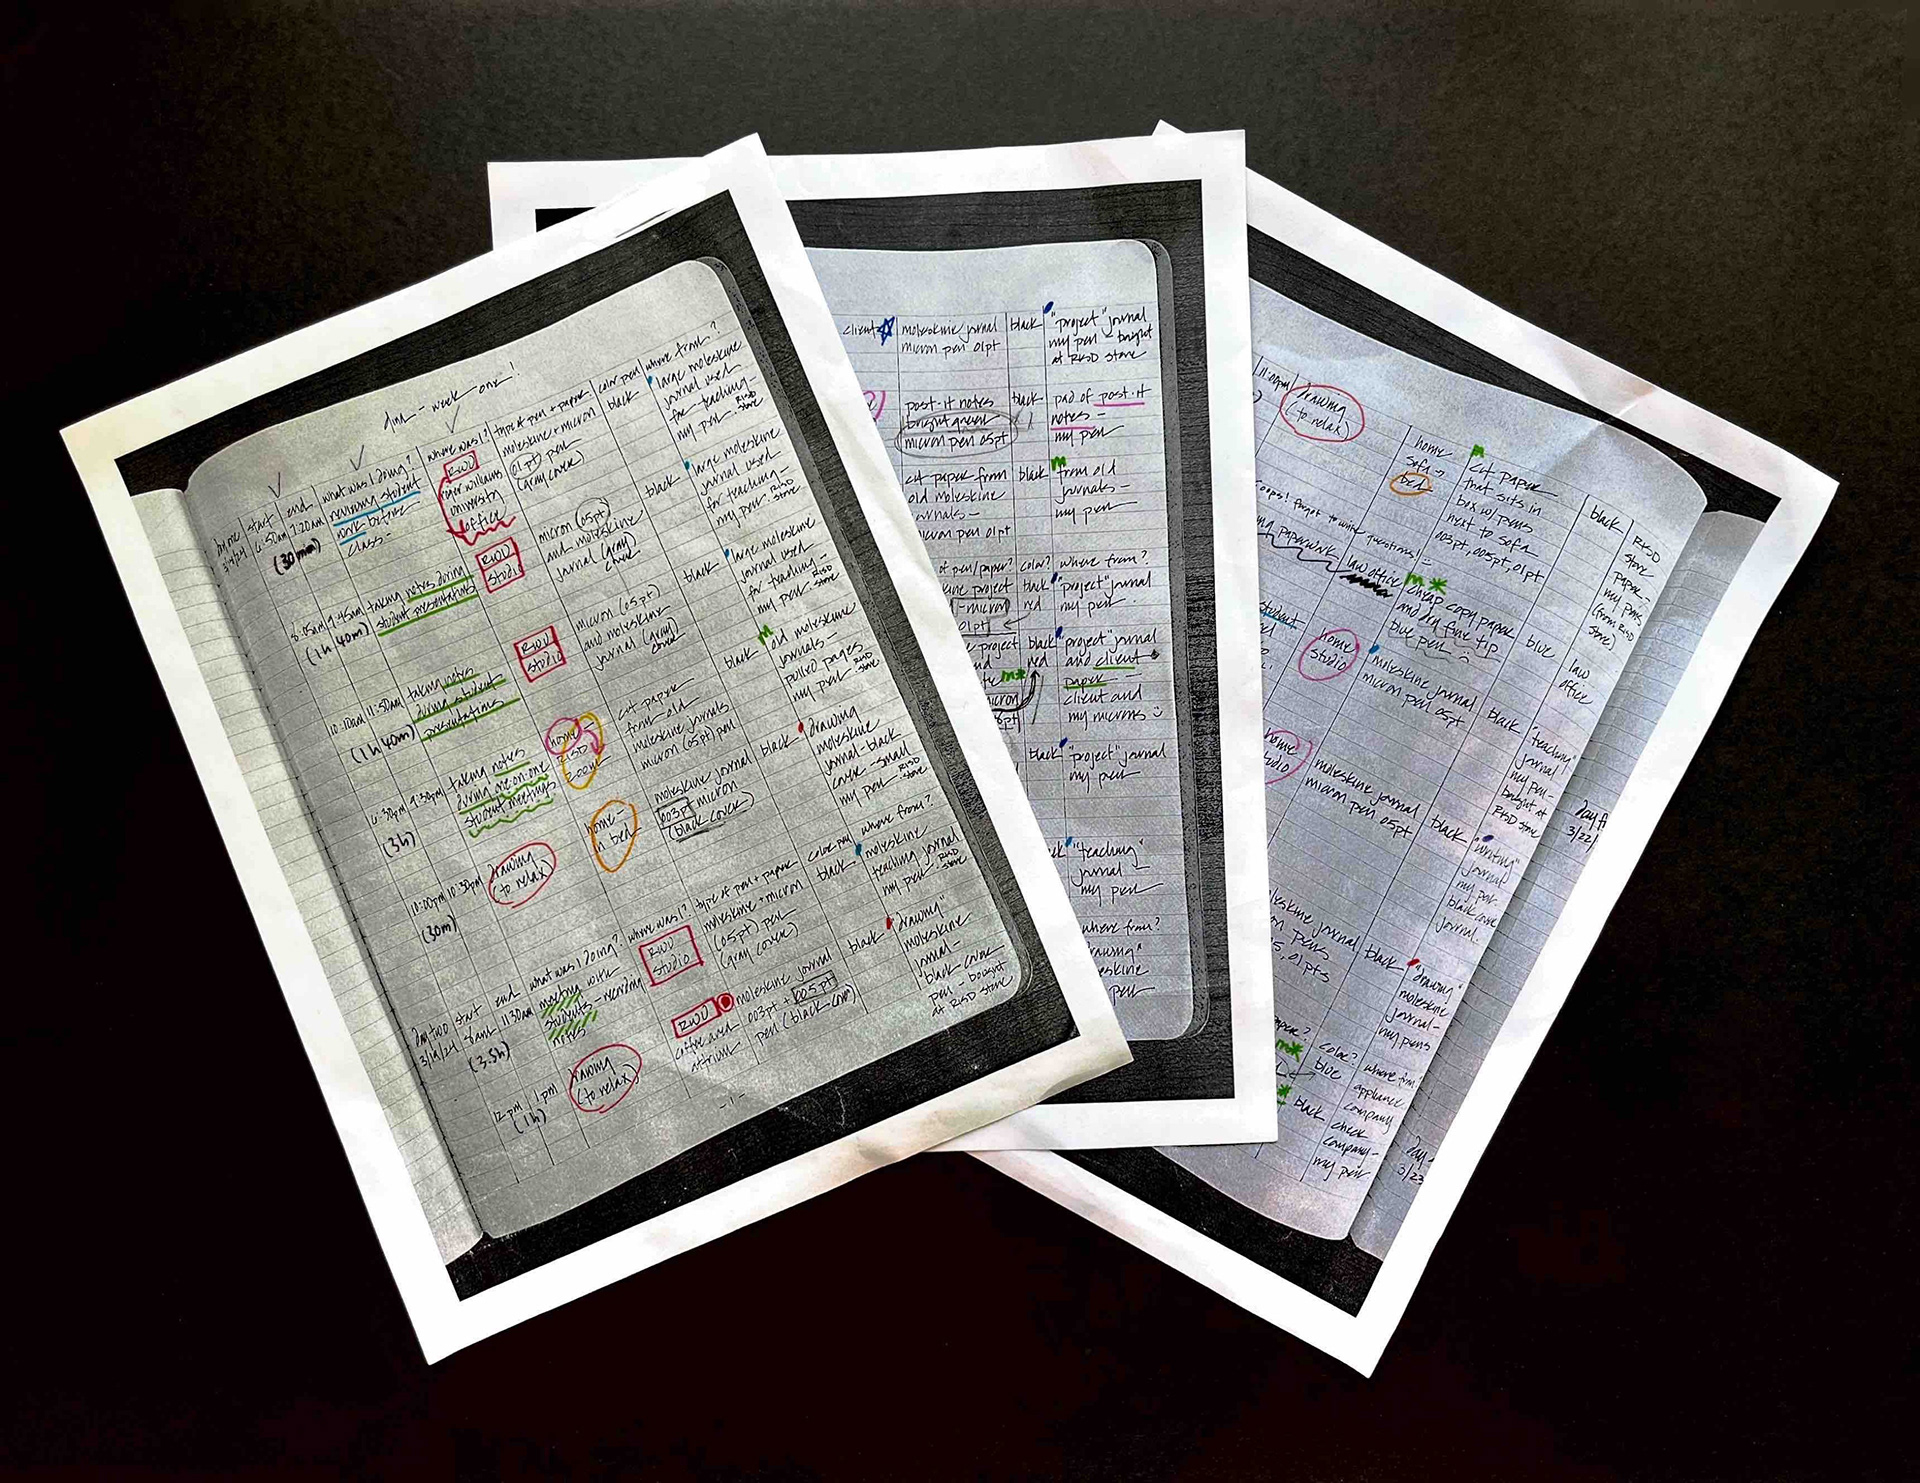 data - week one!
time start end what was I doing? where was I? type of pen + paper color pen where from?
3/18/24 6:50am 7:20am
(30min)
reviewing student
work before
class -
RWU
roger williams
university
office
moleskine + micron
(01pt) pen
(gray cover)
black
large moleskine
journal used
for teaching -
my pen RISD store
8:05am 9:45am
(1h 40m)
taking notes during
student presentations
RWU
studio
micron (05pt)
and moleskine
journal (gray)
cover
black
large moleskine
journal used
for teaching -
my pen RISD store
10:10am 11:50am
(1h 40m)
taking notes
during student
presentations
RWU
studio
micron (05pt)
and moleskine
journal (gray)
cover
black
large moleskine
journal used
for teaching -
my pen RISD store
6:30pm 9:30pm
(3h)
taking notes
during one-on-one
student meetings
home
RISD
zoom
cut paper
from old
moleskine journals
micron (05pt) pen
black
m
old moleskine
journals -
pulled pages
my pen RISD store
10:00pm 10:30pm
(30m)
drawing
(to relax)
home -
in bed
moleskine journal
003pt micron
(black cover)
black
drawing
moleskine
journal - black
cover - small
my pen RISD store
Day two start end what was I doing? where was I? type of pen + paper color pen where from?
3/19/24 8am 11:30am
(3.5h)
meeting with
students - recording
notes
RWU
studio
moleskine + micron
(05pt) pen
(gray cover)
black
moleskine
teaching journal
my pen RISD store
12pm 1pm
(1h)
drawing
(to relax)
RWU
coffee area
atrium
moleskine journal
003pt + 005pt
pen (black cover)
black
"drawing"
moleskine
journal -
black cover
pen - bought
at RISD store
-1-
client
moleskine journal
micron pen 01pt
black
"project" journal
my pen - bought
at RISD store
post-it notes
bright green
micron pen 05pt
black
pad of post-it
notes -
my pen
cut paper from
old moleskine
journals -
micron pen 01pt
black
m
from old
journals -
my pen
of pen/paper? color? where from?
project
- micron
01pt
black
red
"project" journal
my pen
project
m*
micron
black
red
"project" journal
and client
paper -
client and
my microns
black
"project" journal
my pen
"teaching"
journal -
my pen
where from?
drawing"
moleskine
pen
11:00pm
drawing
(to relax)
home
sofa →
bed
m
cut paper
that sits in
box w/pens
next to sofa
003pt, 005pt, 01pt
black
RISD
store
paper -
my pens
(from RISD
store)
oops! forget to write questions!
paperwork
law office
m*
cheap copy paper
and an fine tip
blue pen
blue
law
office
student
home
studio
moleskine journal
micron pen 05pt
black
"teaching"
journal
my pen -
bought at
RISD store
home
studio
moleskine journal
micron pen 05pt
black
"writing"
journal
my pen -
black cover
journal.
moleskine journal
pens
01pts
black
"drawing"
moleskine
journal -
my pens
paper? color? where from
m*
blue
appliance
company
black
check
company -
my pen
Day
3/22/
Day
3/23